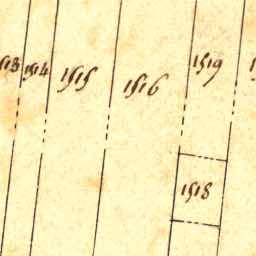 1514 1515 1516 1519
1518